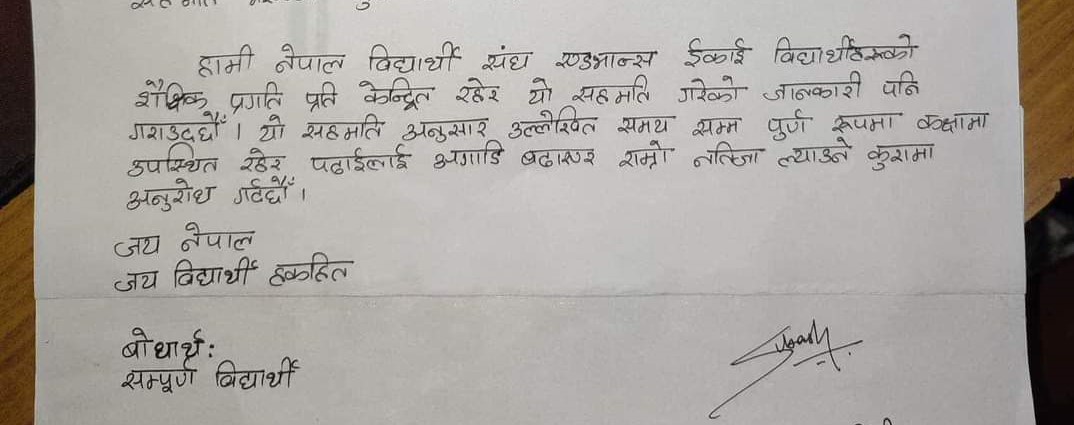 हामी नेपाल विद्यार्थी संघ एडभान्स ईकाई विद्यार्थीहरूको
शैक्षिक प्रगति प्रति केन्द्रित रहेर यो सहमति गरेको जानकारी पनि
गराउदछौँ । यो सहमति अनुसार उल्लेखित समय सम्म पुर्ण रूपमा कक्षामा
उपस्थित रहेर पढाईलाई अगाडि बढाएर राम्रो नतिजा ल्याउने कुरामा
अनुरोध गर्दछौँ ।
जय नेपाल
जय विद्यार्थी हकहित
बोधार्थ :
सम्पूर्ण विद्यार्थी